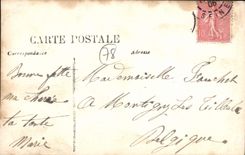 CARTE POSTALE
Correspondance
Adresse
78
Bonne fête
ma chère
ta tante
Marie
Mademoiselle
A Montigny les Tilleuls
Belgique